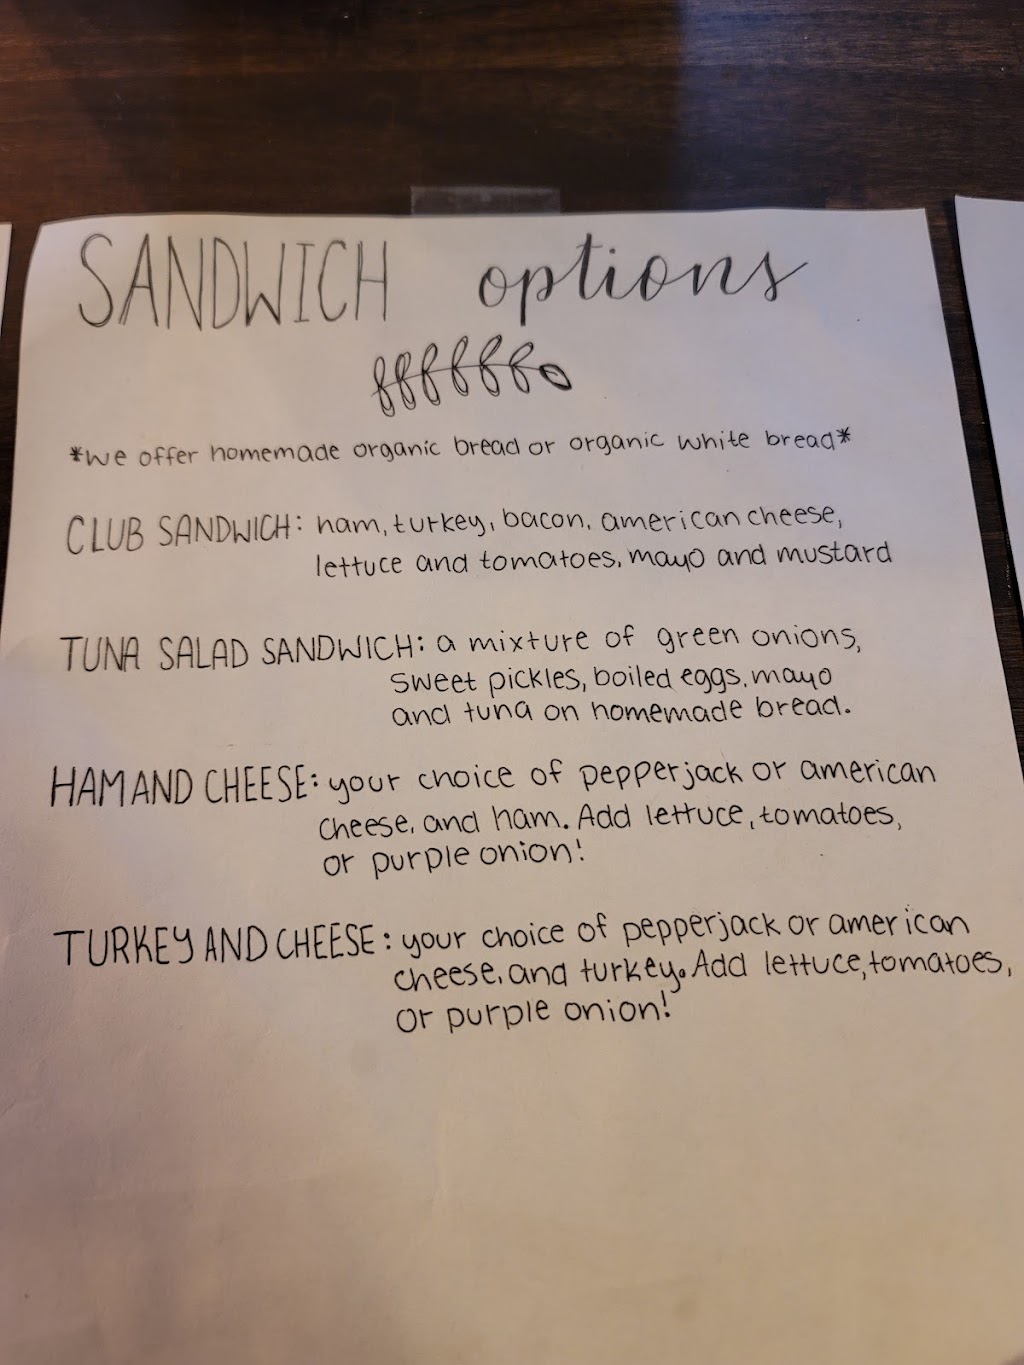 SANDWICH options
*we offer homemade organic bread or organic white bread*
CLUB SANDWICH: ham, turkey, bacon, american cheese,
lettuce and tomatoes, mayo and mustard
TUNA SALAD SANDWICH: a mixture of green onions,
sweet pickles, boiled eggs, mayo
and tuna on homemade bread.
HAM AND CHEESE: your choice of pepperjack or american
cheese, and ham. Add lettuce, tomatoes,
or purple onion!
TURKEY AND CHEESE: your choice of pepperjack or american
cheese, and turkey. Add lettuce, tomatoes,
or purple onion!